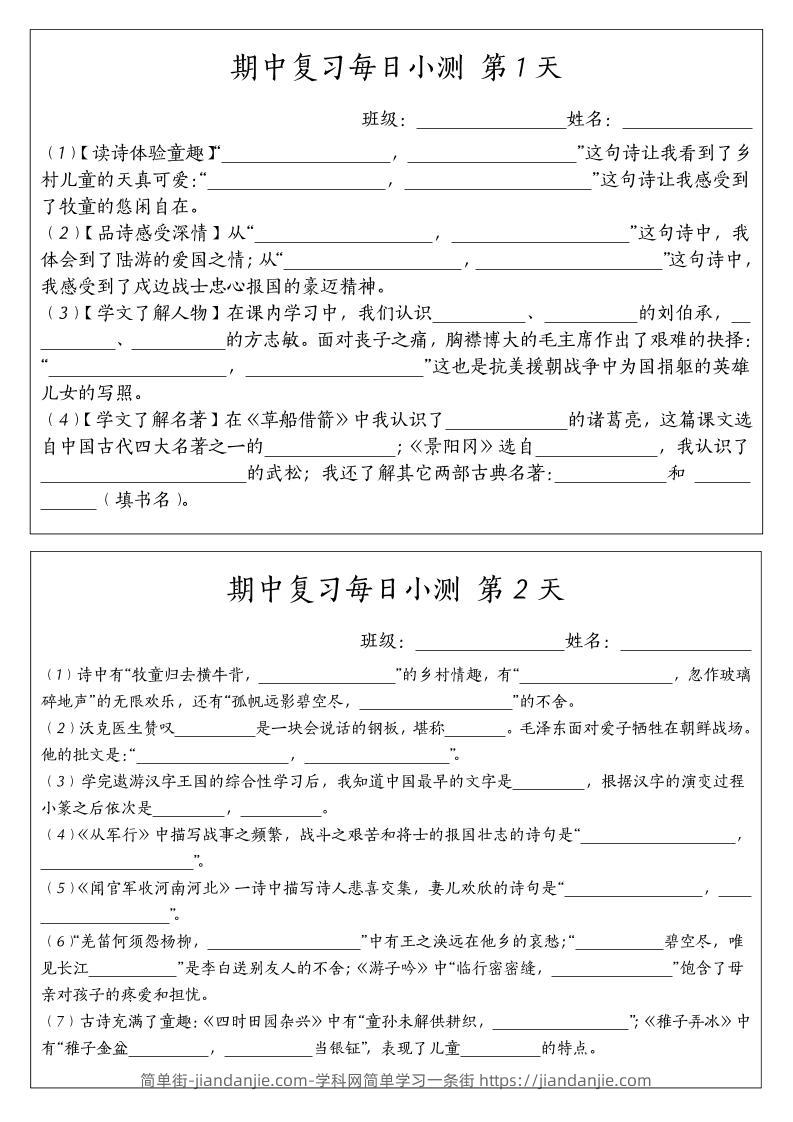 期中复习每日小测 第 1 天
班级：________________姓名：______________
（1）【读诗体验童趣】“__________________，__________________”这句诗让我看到了乡
村儿童的天真可爱：“___________________，____________________”这句诗让我感受到
了牧童的悠闲自在。
（2）【品诗感受深情】从“___________________，___________________”这句诗中，我
体会到了陆游的爱国之情；从“___________________，____________________”这句诗中，
我感受到了戍边战士忠心报国的豪迈精神。
（3）【学文了解人物】在课内学习中，我们认识__________、__________的刘伯承，__
________、__________的方志敏。面对丧子之痛，胸襟博大的毛主席作出了艰难的抉择：
“___________________，___________________”这也是抗美援朝战争中为国捐躯的英雄
儿女的写照。
（4）【学文了解名著】在《草船借箭》中我认识了_____________的诸葛亮，这篇课文选
自中国古代四大名著之一的______________；《景阳冈》选自_____________，我认识了
______________________的武松；我还了解其它两部古典名著：____________和 ______
______（填书名）。
期中复习每日小测 第 2 天
班级：________________姓名：______________
（1）诗中有“牧童归去横牛背，_________________”的乡村情趣，有“___________________，忽作玻璃
碎地声”的无限欢乐，还有“孤帆远影碧空尽，___________________”的不舍。
（2）沃克医生赞叹__________是一块会说话的钢板，堪称_______。毛泽东面对爱子牺牲在朝鲜战场。
他的批文是：“___________________，__________________”。
（3）学完遨游汉字王国的综合性学习后，我知道中国最早的文字是_________，根据汉字的演变过程
小篆之后依次是_________，__________。
（4）《从军行》中描写战事之频繁，战斗之艰苦和将士的报国壮志的诗句是“___________________，
___________________”。
（5）《闻官军收河南河北》一诗中描写诗人悲喜交集，妻儿欢欣的诗句是“_________________，____
________________”。
（6）“羌笛何须怨杨柳，___________________”中有王之涣远在他乡的哀愁；“___________碧空尽，唯
见长江___________”是李白送别友人的不舍；《游子吟》中“临行密密缝，_______________”饱含了母
亲对孩子的疼爱和担忧。
（7）古诗充满了童趣：《四时田园杂兴》中有“童孙未解供耕织，_________________”；《稚子弄冰》中
有“稚子金盆__________，___________当银钲”，表现了儿童__________的特点。
简单街-jiandanjie.com-学科网简单学习一条街 https://jiandanjie.com